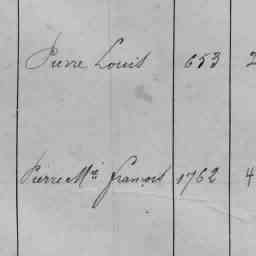 Pierre Louis 653 2
Pierre Mie François 1762 4